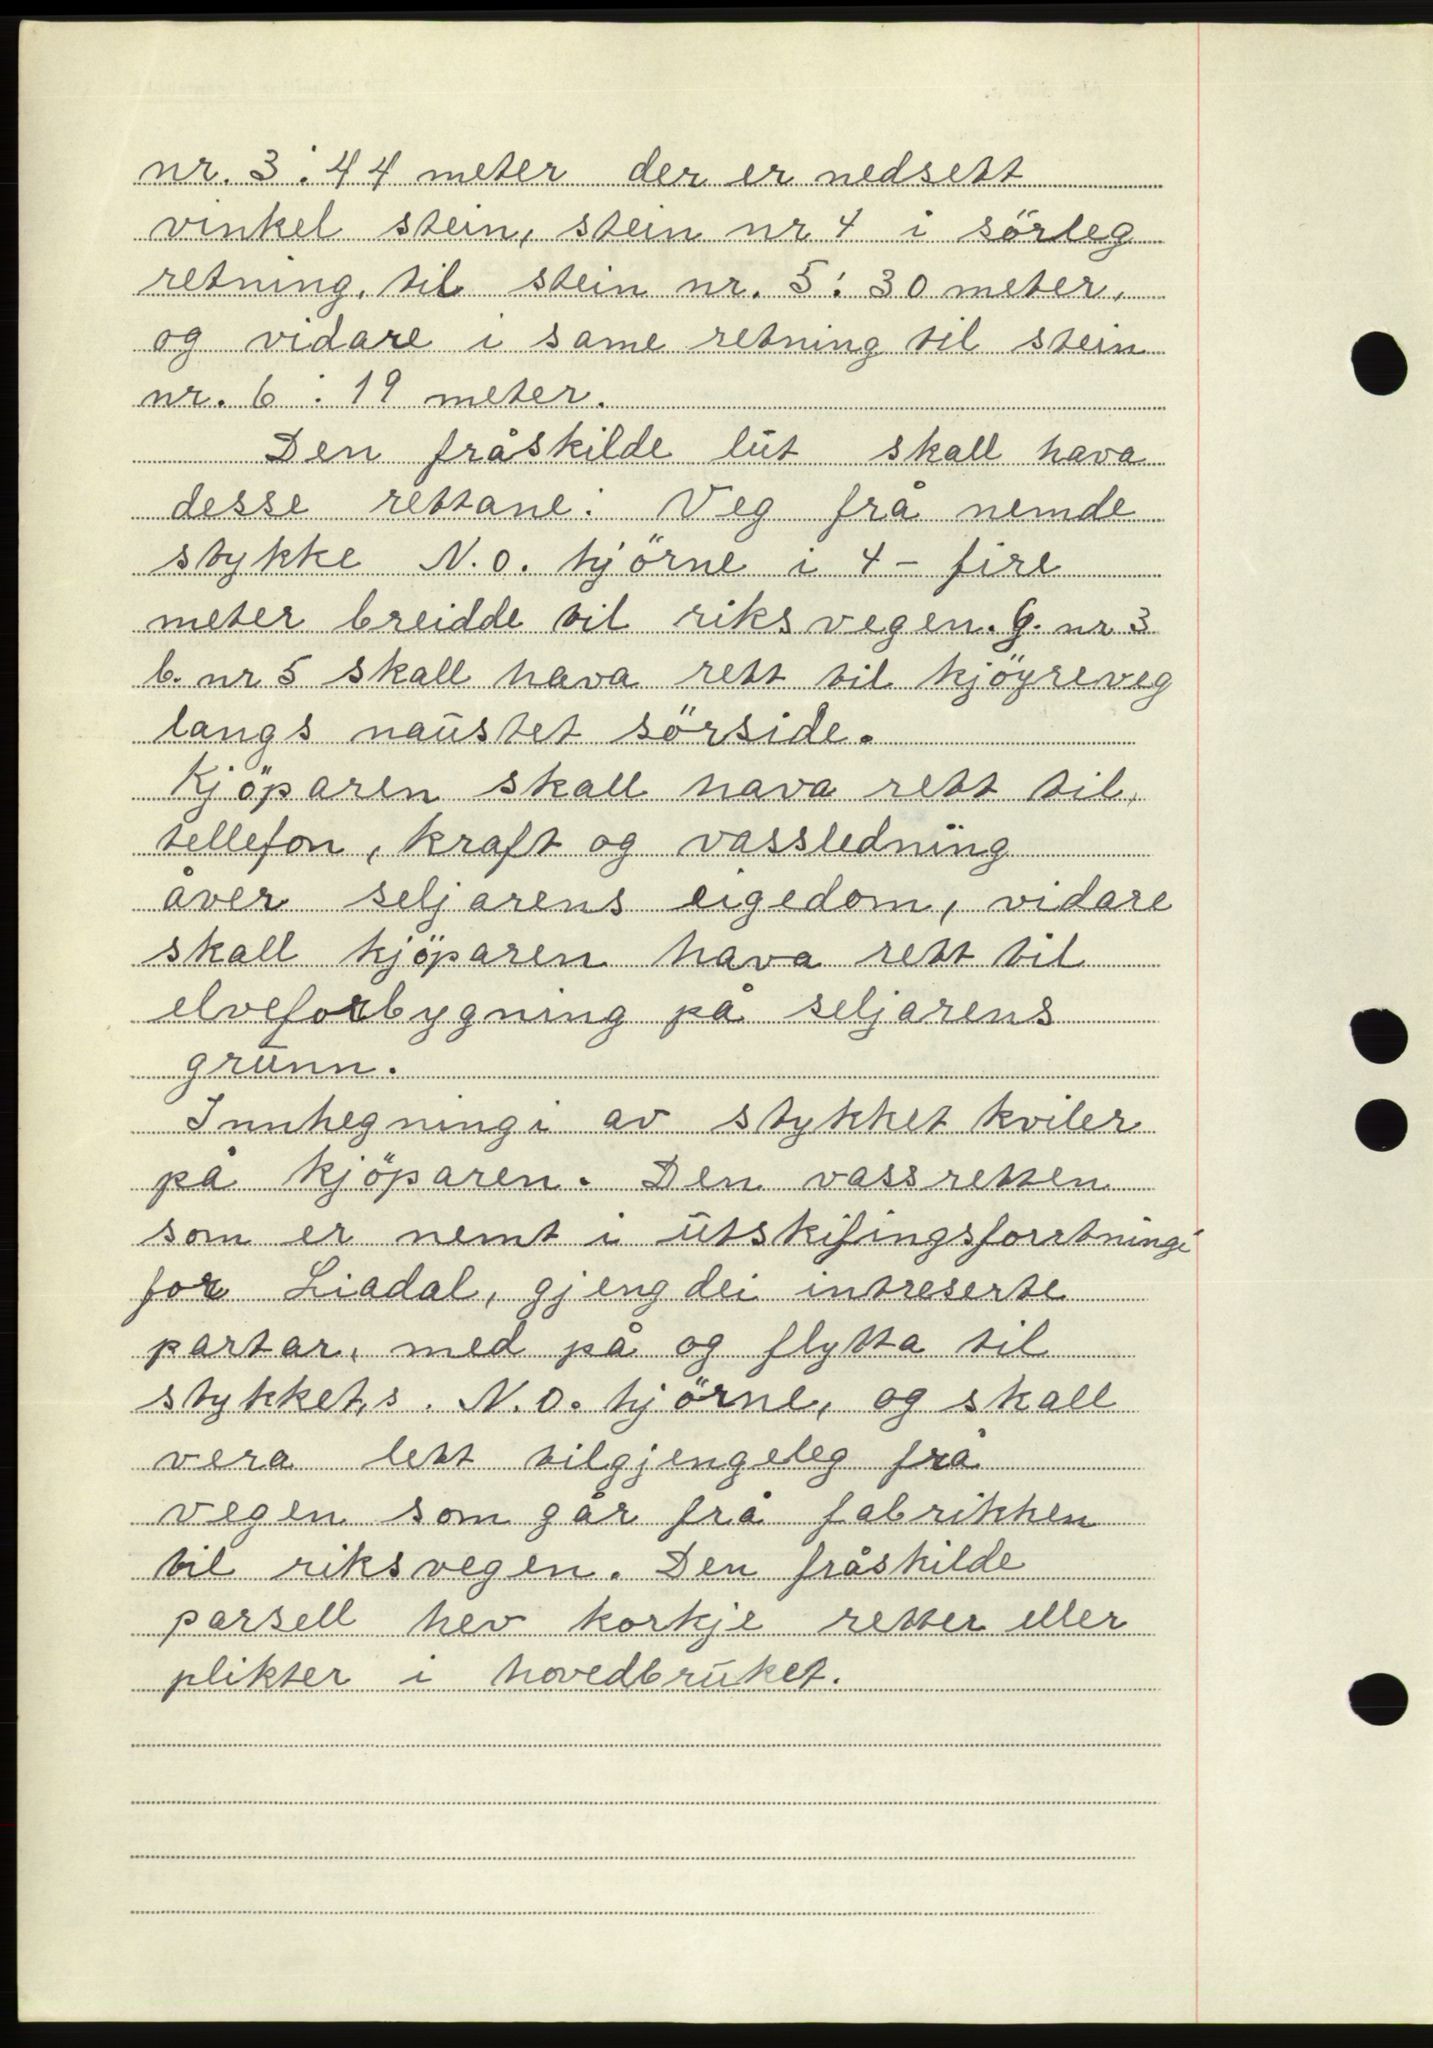 nr. 3 : 44 meter der er nedsett
vinkel stein, stein nr 4 i sörleg
retning. til stein nr. 5 : 30 meter,
og vidare i same retning til stein
nr. 6 : 19 meter.
Den fråskilde lut skall hava
desse rettane : Veg frå nemde
stykke N.O. hjörne i 4 - fire
meter breidde til riksvegen. G. nr 3
b. nr 5 skall hava rett til kjöyreveg
langs naustet sörside.
Kjöparen skall hava rett til,
tellefon, kraft og vassledning
åver seljarens eigedom, vidare
skall kjöparen hava rett til
elveforbygning på seljarens
grunn.
Innhegningi av stykket kviler
på kjöparen. Den vassretten
som er nemt i utskifingsforrtningi
for Liadal, gjeng dei intreserte
partar, med på og flytta til
stykket,s. N.O. hjörne, og skall
vera lett tilgjengeleg frå
vegen som går frå fabrikken
til riksvegen. Den fråskilde
parsell hev korkje retter eller
plikter i hovedbruket.